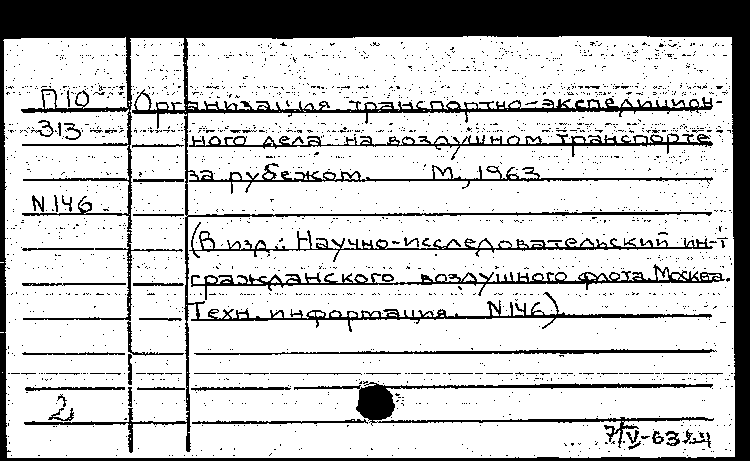 П10 Организация транспортно-экспедицион-
313 ного дела на воздушном транспорте
за рубежом. М., 1963
N 146
(В изд.: Научно-исследовательский ин-т
гражданского воздушного флота. Москва.
Техн. информация. N 146).
2